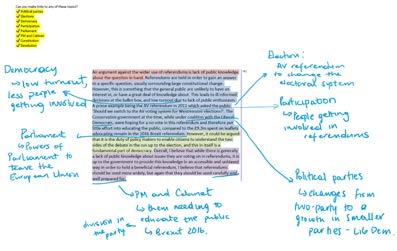 Can you make links to any of these topics?
✓ Political parties
✓ Elections
✓ Democracy
✓ Participation
✓ Parliament
✓ PM and Cabinet
✓ Constitution
✓ Devolution
Democracy
↳ low turnout,
less people
getting involved
Parliament
↳ Powers of
Parliament to
leave the
European Union
An argument against the wider use of referendums is lack of public knowledge
about the question in hand. Referendums are held in order to gain an answer
to a specific question, usually surrounding large constitutional change.
However, this is something that the general public are unlikely to have an
interest in, or have a great deal of knowledge about. This leads to ill informed
decisions at the ballot box, and low turnout due to lack of public enthusiasm.
A prime example being the AV referendum in 2011 which asked the public
'Should we switch to the AV voting system for Westminster elections?'. The
Conservative government at the time, while under coalition with the Liberal
Democrats, were hoping for a no vote in this referendum and therefore put
little effort into educating the public, compared to the £9.3m spent on leaflets
advocating remain in the 2016 Brexit referendum. However, it could be argued
that it is the duty of policy makers to enable citizens to understand the two
sides of the debate in the run up to the election, and this in itself is a
fundamental part of democracy. Overall, I believe that while there is generally
a lack of public knowledge about issues they are voting on in referendums, it is
up to the government to provide this knowledge in an accessible and unbiased
way in order to hold a beneficial referendum. I believe that referendums
should be used more widely, but again that they should be used carefully and
well prepared for.
Election:
AV referendum
to change the
electoral system
Participation
↳ People getting
involved in
referendums
Political parties
↳ changes from
two-party to a
growth in smaller
parties - Lib Dem.
PM and Cabinet
↳ them needing to
educate the public
↳ Brexit 2016.
division in
the party